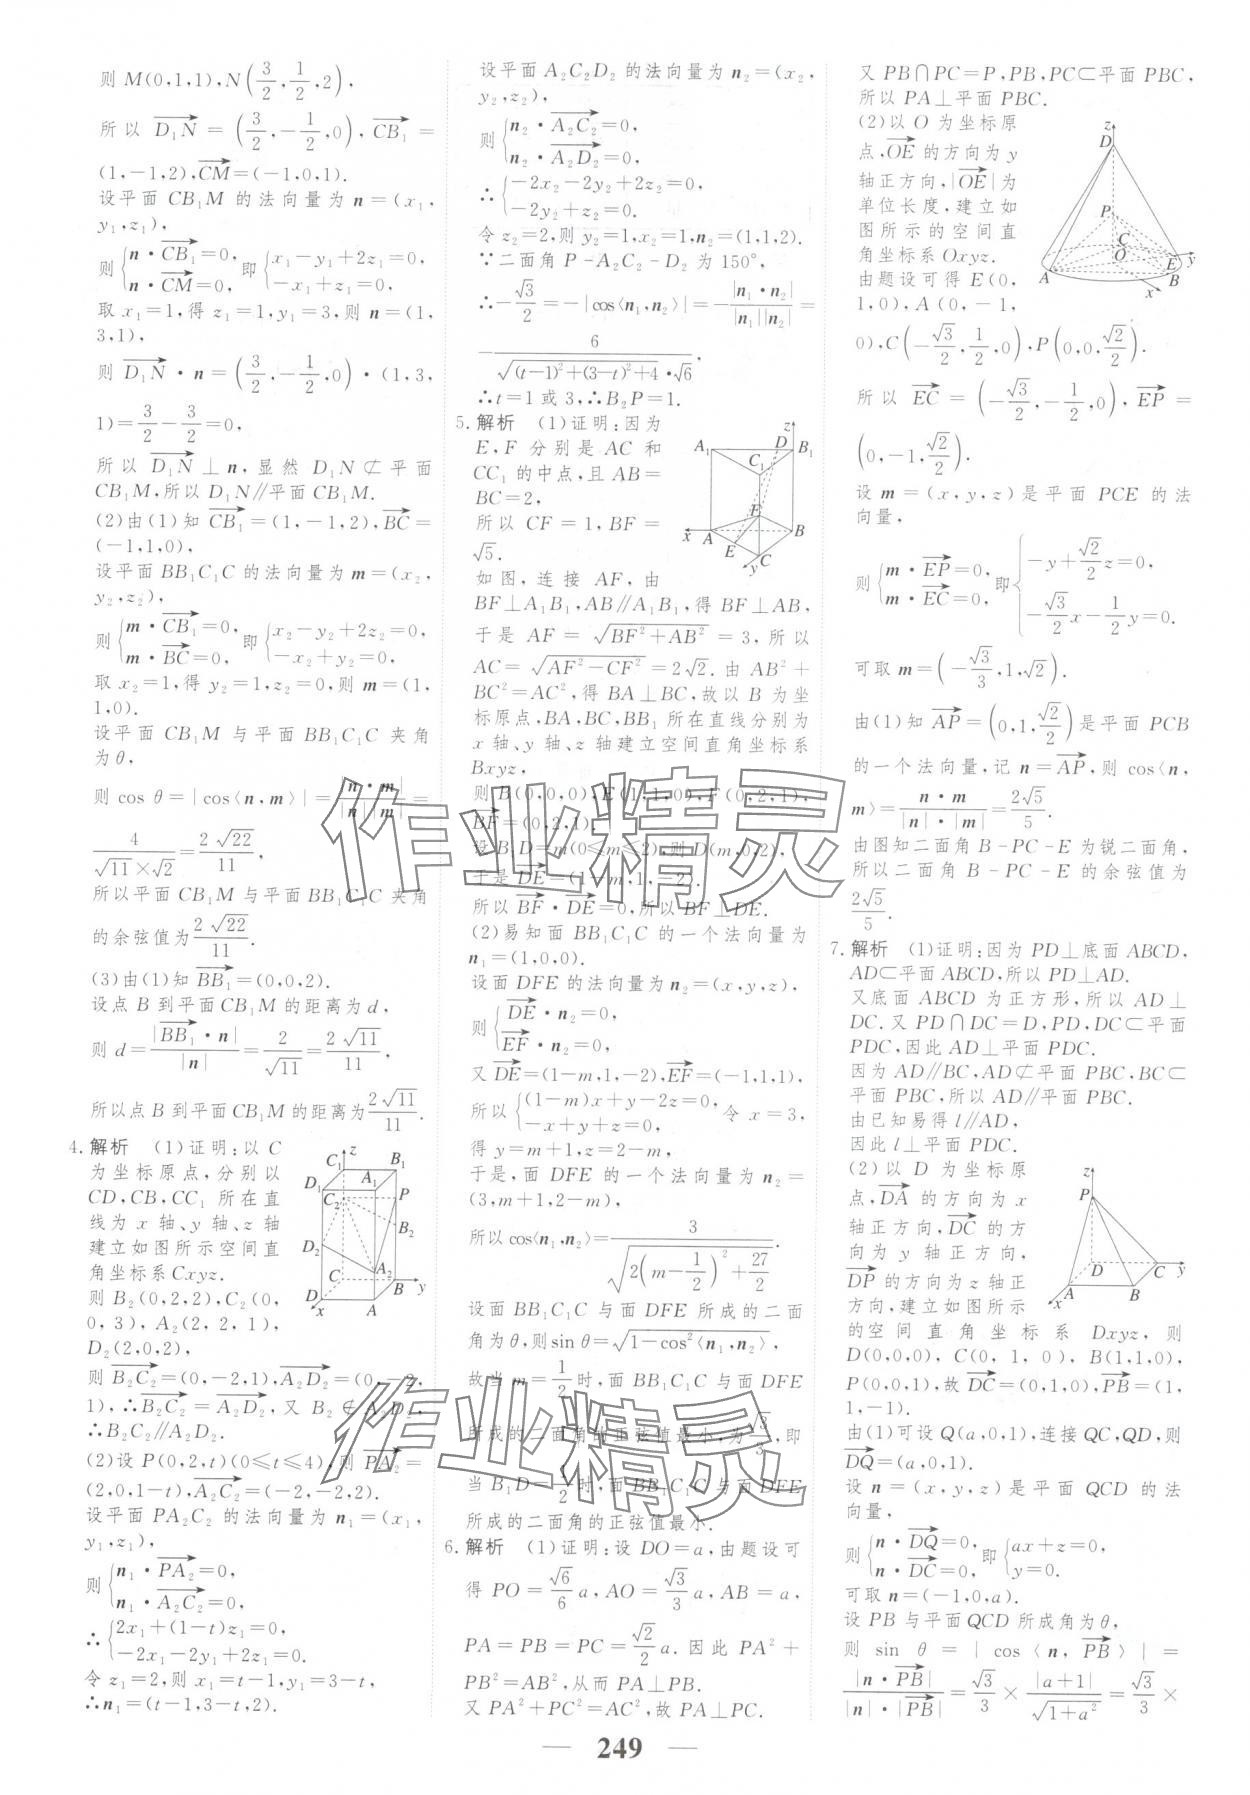 则 M(0,1,1),N(3/2,1/2,2),
所以 D₁N→=(3/2,-1/2,0),CB₁→=
(1,-1,2),CM→=(-1,0,1).
设平面 CB₁M 的法向量为 n=(x₁,
y₁,z₁),
则{n·CB₁→=0, n·CM→=0, 即{x₁-y₁+2z₁=0, -x₁+z₁=0,
取 x₁=1,得 z₁=1,y₁=3,则 n=(1,
3,1),
则 D₁N→·n=(3/2,-1/2,0)·(1,3,
1)=3/2-3/2=0,
所以 D₁N→⊥n,显然 D₁N⊄平面
CB₁M,所以 D₁N∥平面 CB₁M.
(2)由(1)知 CB₁→=(1,-1,2),BC→=
(-1,1,0),
设平面 BB₁C₁C 的法向量为 m=(x₂,
y₂,z₂),
则{m·CB₁→=0, m·BC→=0, 即{x₂-y₂+2z₂=0, -x₂+y₂=0,
取 x₂=1,得 y₂=1,z₂=0,则 m=(1,
1,0).
设平面 CB₁M 与平面 BB₁C₁C 夹角
为θ,
则 cos θ=|cos⟨n,m⟩|=|n·m|/|n||m|=
4/(√11×√2)=2√22/11,
所以平面 CB₁M 与平面 BB₁C₁C 夹角
的余弦值为2√22/11.
(3)由(1)知 BB₁→=(0,0,2).
设点 B 到平面 CB₁M 的距离为 d,
则 d=|BB₁→·n|/|n|=2/√11=2√11/11,
所以点 B 到平面 CB₁M 的距离为2√11/11.
4.解析 (1)证明:以 C
为坐标原点,分别以
CD,CB,CC₁ 所在直
线为 x 轴、y 轴、z 轴
建立如图所示空间直
角坐标系Cxyz.
则 B₂(0,2,2),C₂(0,
0,3),A₂(2,2,1),
D₂(2,0,2),
C₁ z B₁
D₁ A₁
C₂ P
B₂
D₂
A₂
C B y
D x A
则 B₂C₂→=(0,-2,1),A₂D₂→=(0,-2,
1),∴B₂C₂→=A₂D₂→,又 B₂∉A₂D₂,
∴B₂C₂∥A₂D₂.
(2)设 P(0,2,t)(0≤t≤4),则 PA₂→=
(2,0,1-t),A₂C₂→=(-2,-2,2).
设平面 PA₂C₂ 的法向量为 n₁=(x₁,
y₁,z₁),
则{n₁·PA₂→=0, n₁·A₂C₂→=0,
∴{2x₁+(1-t)z₁=0, -2x₁-2y₁+2z₁=0.
令 z₁=2,则 x₁=t-1,y₁=3-t,
∴n₁=(t-1,3-t,2).
设平面 A₂C₂D₂ 的法向量为 n₂=(x₂,
y₂,z₂),
则{n₂·A₂C₂→=0, n₂·A₂D₂→=0,
∴{-2x₂-2y₂+2z₂=0, -2y₂+z₂=0.
令 z₂=2,则 y₂=1,x₂=1,n₂=(1,1,2).
∵二面角 P-A₂C₂-D₂ 为 150°,
∴-√3/2=-|cos⟨n₁,n₂⟩|=-|n₁·n₂|/|n₁||n₂|=
-6/(√((t-1)²+(3-t)²+4)·√6),
∴t=1 或 3,∴B₂P=1.
5.解析 (1)证明:因为
E,F 分别是 AC 和
CC₁的中点,且 AB=
BC=2,
所以 CF=1,BF=
√5.
A₁ D z B₁
C₁
F
x A E B
y C
如图,连接 AF,由
BF⊥A₁B₁,AB∥A₁B₁,得 BF⊥AB,
于是 AF=√(BF²+AB²)=3,所以
AC=√(AF²-CF²)=2√2.由 AB²+
BC²=AC²,得 BA⊥BC,故以 B 为坐
标原点,BA,BC,BB₁所在直线分别为
x 轴、y 轴、z 轴建立空间直角坐标系
Bxyz,
则 B(0,0,0),E(1,1,0),F(0,2,1),
BF→=(0,2,1).
设 B₁D=m(0≤m≤2),则 D(m,0,2),
于是 DE→=(1-m,1,-2).
所以 BF→·DE→=0,所以 BF⊥DE.
(2)易知面 BB₁C₁C 的一个法向量为
n₁=(1,0,0).
设面 DFE 的法向量为 n₂=(x,y,z),
则{DE→·n₂=0, EF→·n₂=0,
又 DE→=(1-m,1,-2),EF→=(-1,1,1),
所以{(1-m)x+y-2z=0, -x+y+z=0, 令 x=3,
得 y=m+1,z=2-m,
于是,面 DFE 的一个法向量为 n₂=
(3,m+1,2-m),
所以cos⟨n₁,n₂⟩=3/√(2(m-1/2)²+27/2).
设面 BB₁C₁C 与面 DFE 所成的二面
角为θ,则sin θ=√(1-cos²⟨n₁,n₂⟩),
故当 m=1/2时,面 BB₁C₁C 与面 DFE
所成的二面角的正弦值最小,为√3/3,即
当 B₁D=1/2时,面 BB₁C₁C 与面 DFE
所成的二面角的正弦值最小.
6.解析 (1)证明:设 DO=a,由题设可
得 PO=√6/6 a,AO=√3/3 a,AB=a,
PA=PB=PC=√2/2 a.因此 PA²+
PB²=AB²,从而 PA⊥PB.
又 PA²+PC²=AC²,故 PA⊥PC.
又 PB∩PC=P,PB,PC⊂平面 PBC,
所以 PA⊥平面 PBC.
(2)以 O 为坐标原
点,OE→的方向为 y
轴正方向,|OE→|为
单位长度,建立如
图所示的空间直
角坐标系 Oxyz.
由题设可得 E(0,
1,0),A(0,-1,
z
D
P
C
O E y
A B
x
0),C(-√3/2,1/2,0),P(0,0,√2/2).
所以 EC→=(-√3/2,-1/2,0),EP→=
(0,-1,√2/2).
设 m=(x,y,z)是平面 PCE 的法
向量,
则{m·EP→=0, m·EC→=0, 即{-y+√2/2 z=0, -√3/2 x-1/2 y=0.
可取 m=(-√3/3,1,√2).
由(1)知 AP→=(0,1,√2/2)是平面 PCB
的一个法向量,记 n=AP→,则 cos⟨n,
m⟩=n·m/|n|·|m|=2√5/5.
由图知二面角 B-PC-E 为锐二面角,
所以二面角 B-PC-E 的余弦值为
2√5/5.
7.解析 (1)证明:因为 PD⊥底面 ABCD,
AD⊂平面 ABCD,所以 PD⊥AD.
又底面 ABCD 为正方形,所以 AD⊥
DC.又 PD∩DC=D,PD,DC⊂平面
PDC,因此 AD⊥平面 PDC.
因为 AD∥BC,AD⊄平面 PBC,BC⊂
平面 PBC,所以 AD∥平面 PBC.
由已知易得 l∥AD,
因此 l⊥平面 PDC.
(2)以 D 为坐标原
点,DA→的方向为 x
轴正方向,DC→的方
向为 y 轴正方向,
DP→的方向为 z 轴正
方向,建立如图所示
z
P
D C y
x A B
的空间直角坐标系 Dxyz,则
D(0,0,0),C(0,1,0),B(1,1,0),
P(0,0,1),故 DC→=(0,1,0),PB→=(1,
1,-1).
由(1)可设 Q(a,0,1),连接 QC,QD,则
DQ→=(a,0,1).
设 n=(x,y,z)是平面 QCD 的法
向量,
则{n·DQ→=0, n·DC→=0, 即{ax+z=0, y=0.
可取 n=(-1,0,a).
设 PB 与平面QCD 所成角为θ,
则 sin θ=|cos⟨n,PB→⟩|=
|n·PB→|/|n|·|PB→|=√3/3×|a+1|/√(1+a²)=√3/3×
作业精灵
作业精灵
— 249 —